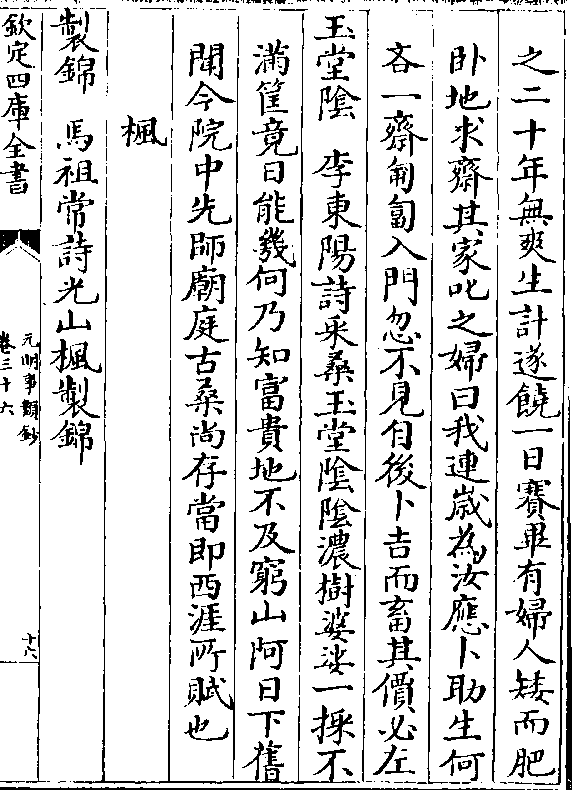 之二十年無爽生計遂饒一日賽畢有婦人矮而肥
卧地求齋其家叱之婦曰我連歲為汝應卜助生何
吝一齋匍匐入門忽不見自後卜吉而畜其價必左
玉堂陰　李東陽詩采桑玉堂陰陰濃樹婆娑一採不
滿筐竟日能幾何乃知富貴地不及窮山阿日下舊
聞今院中先師廟庭古桑尚存當即西涯所賦也
楓
製錦　馬祖常詩光山楓製錦
欽定四庫全書
元明事類鈔
卷三十六
十六